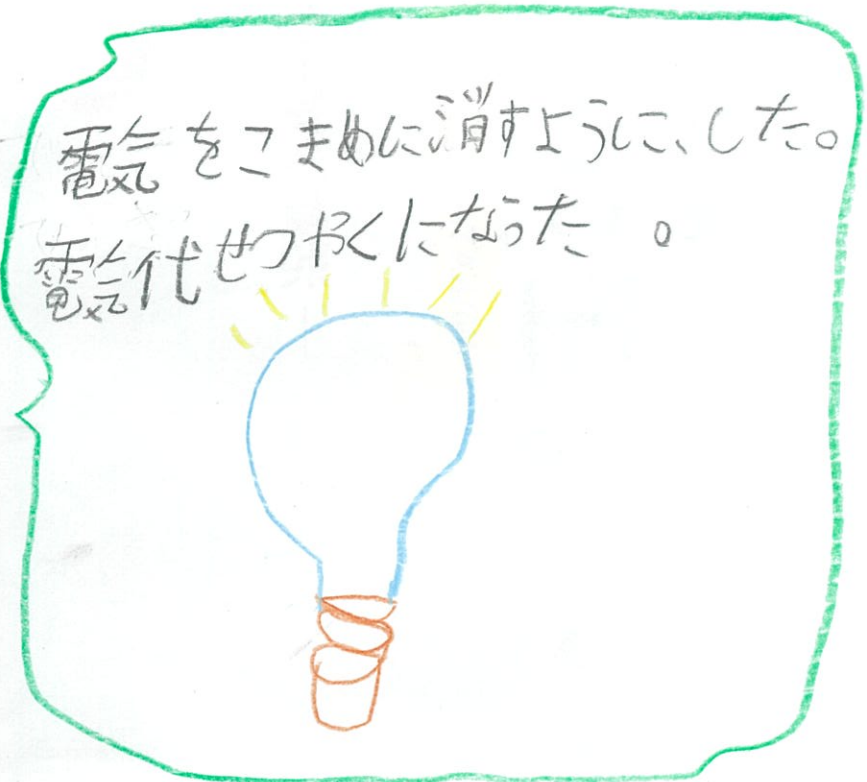 電気をこまめに消すように、した。
電気代せつやくになった。